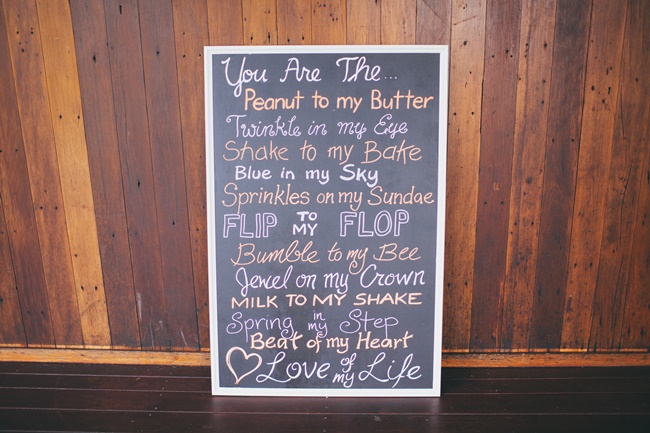 You Are The...
Peanut to my Butter
Twinkle in my Eye
Shake to my Bake
Blue in my Sky
Sprinkles on my Sundae
FLIP TO MY FLOP
Bumble to my Bee
Jewel on my Crown
MILK TO MY SHAKE
Spring in my Step
Beat of my Heart
Love of my Life